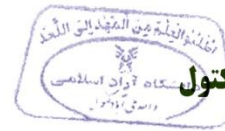 اطلبوا العلم من المهد الی اللحد
دانشگاه آزاد اسلامی
کتول